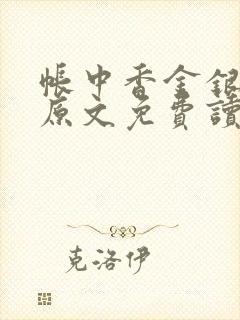 帳中香金銀
原文免費讀
克洛伊